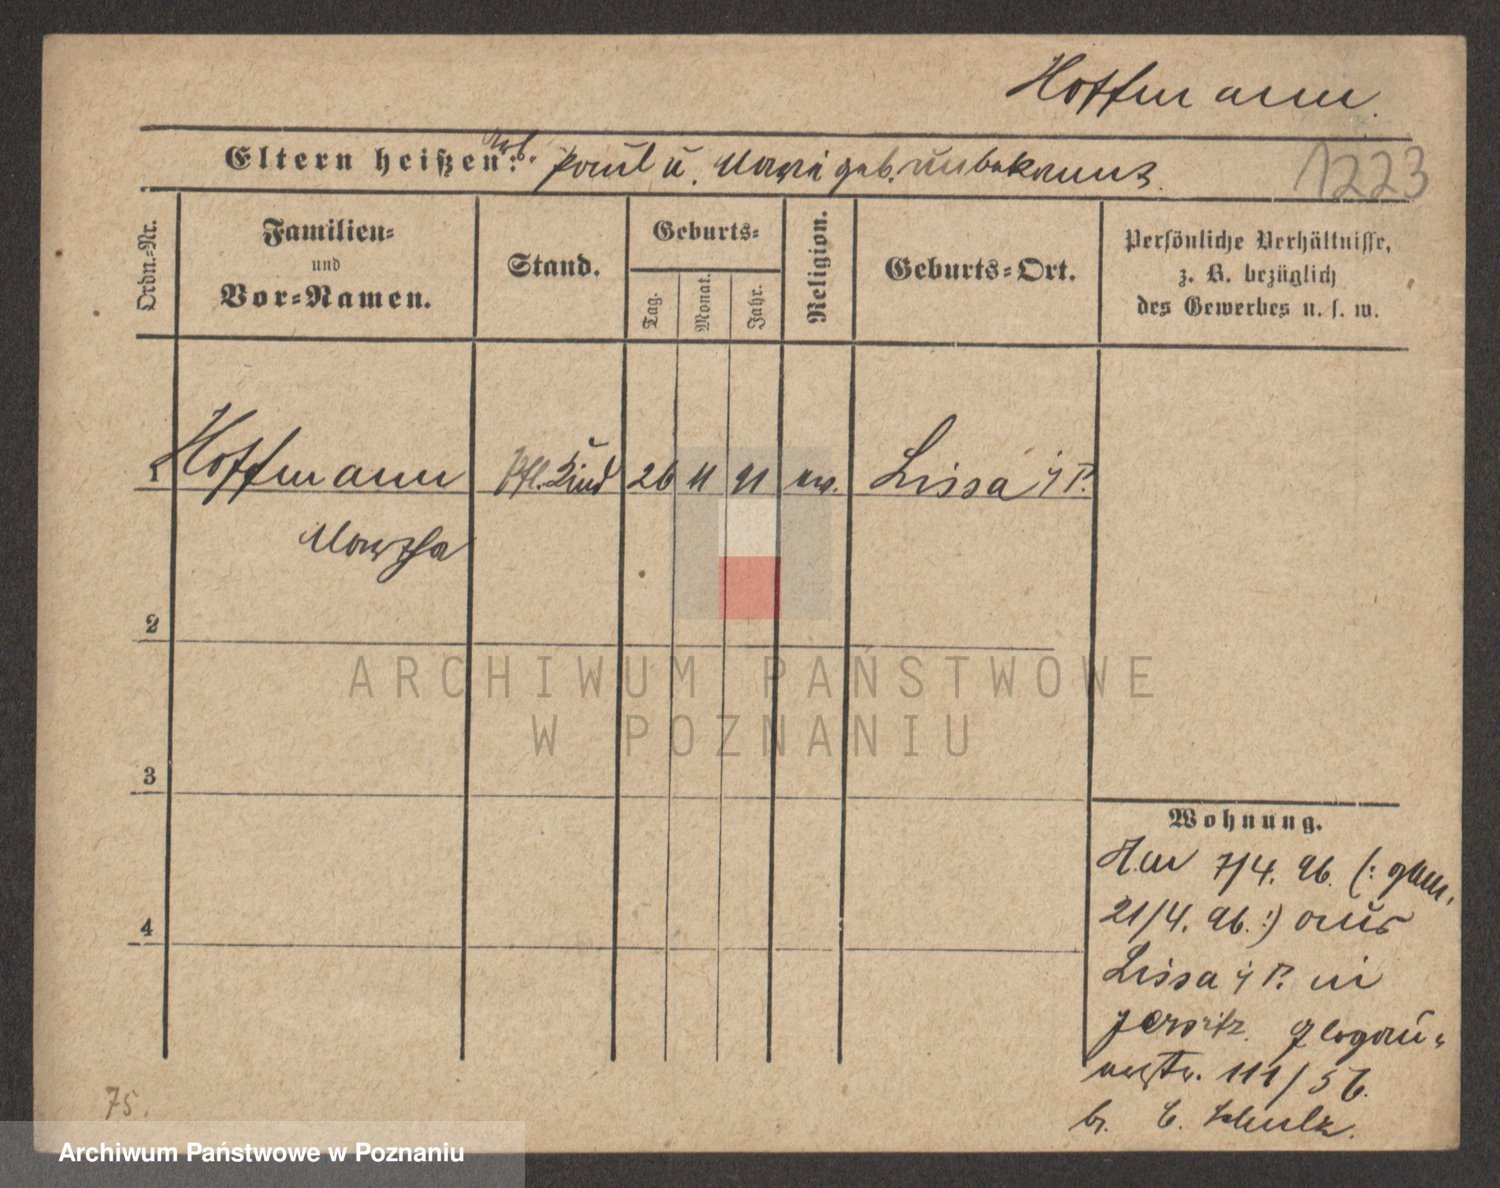 Hoffmann.
Eltern heißen: Arb. Paul u. Marie geb. unbekannt.
1223
Ordn.-Nr.
Familien-
und
Vor-Namen.
Stand.
Geburts-
Tag.
Monat.
Jahr.
Religion.
Geburts-Ort.
Persönliche Verhältnisse,
z. B. bezüglich
des Gewerbes u. s. w.
1 Hoffmann Pfl. Kind 26 11 91 ev. Lissa i/P.
Martha
2
3
4
Wohnung.
Am 7/4. 96. (: gem.
21/4. 96. :) aus
Lissa i/P. in
Jersitz Glogau-
erstr. 111/56.
b. E. Schulz.
75.
ARCHIWUM PAŃSTWOWE
W POZNANIU
Archiwum Państwowe w Poznaniu